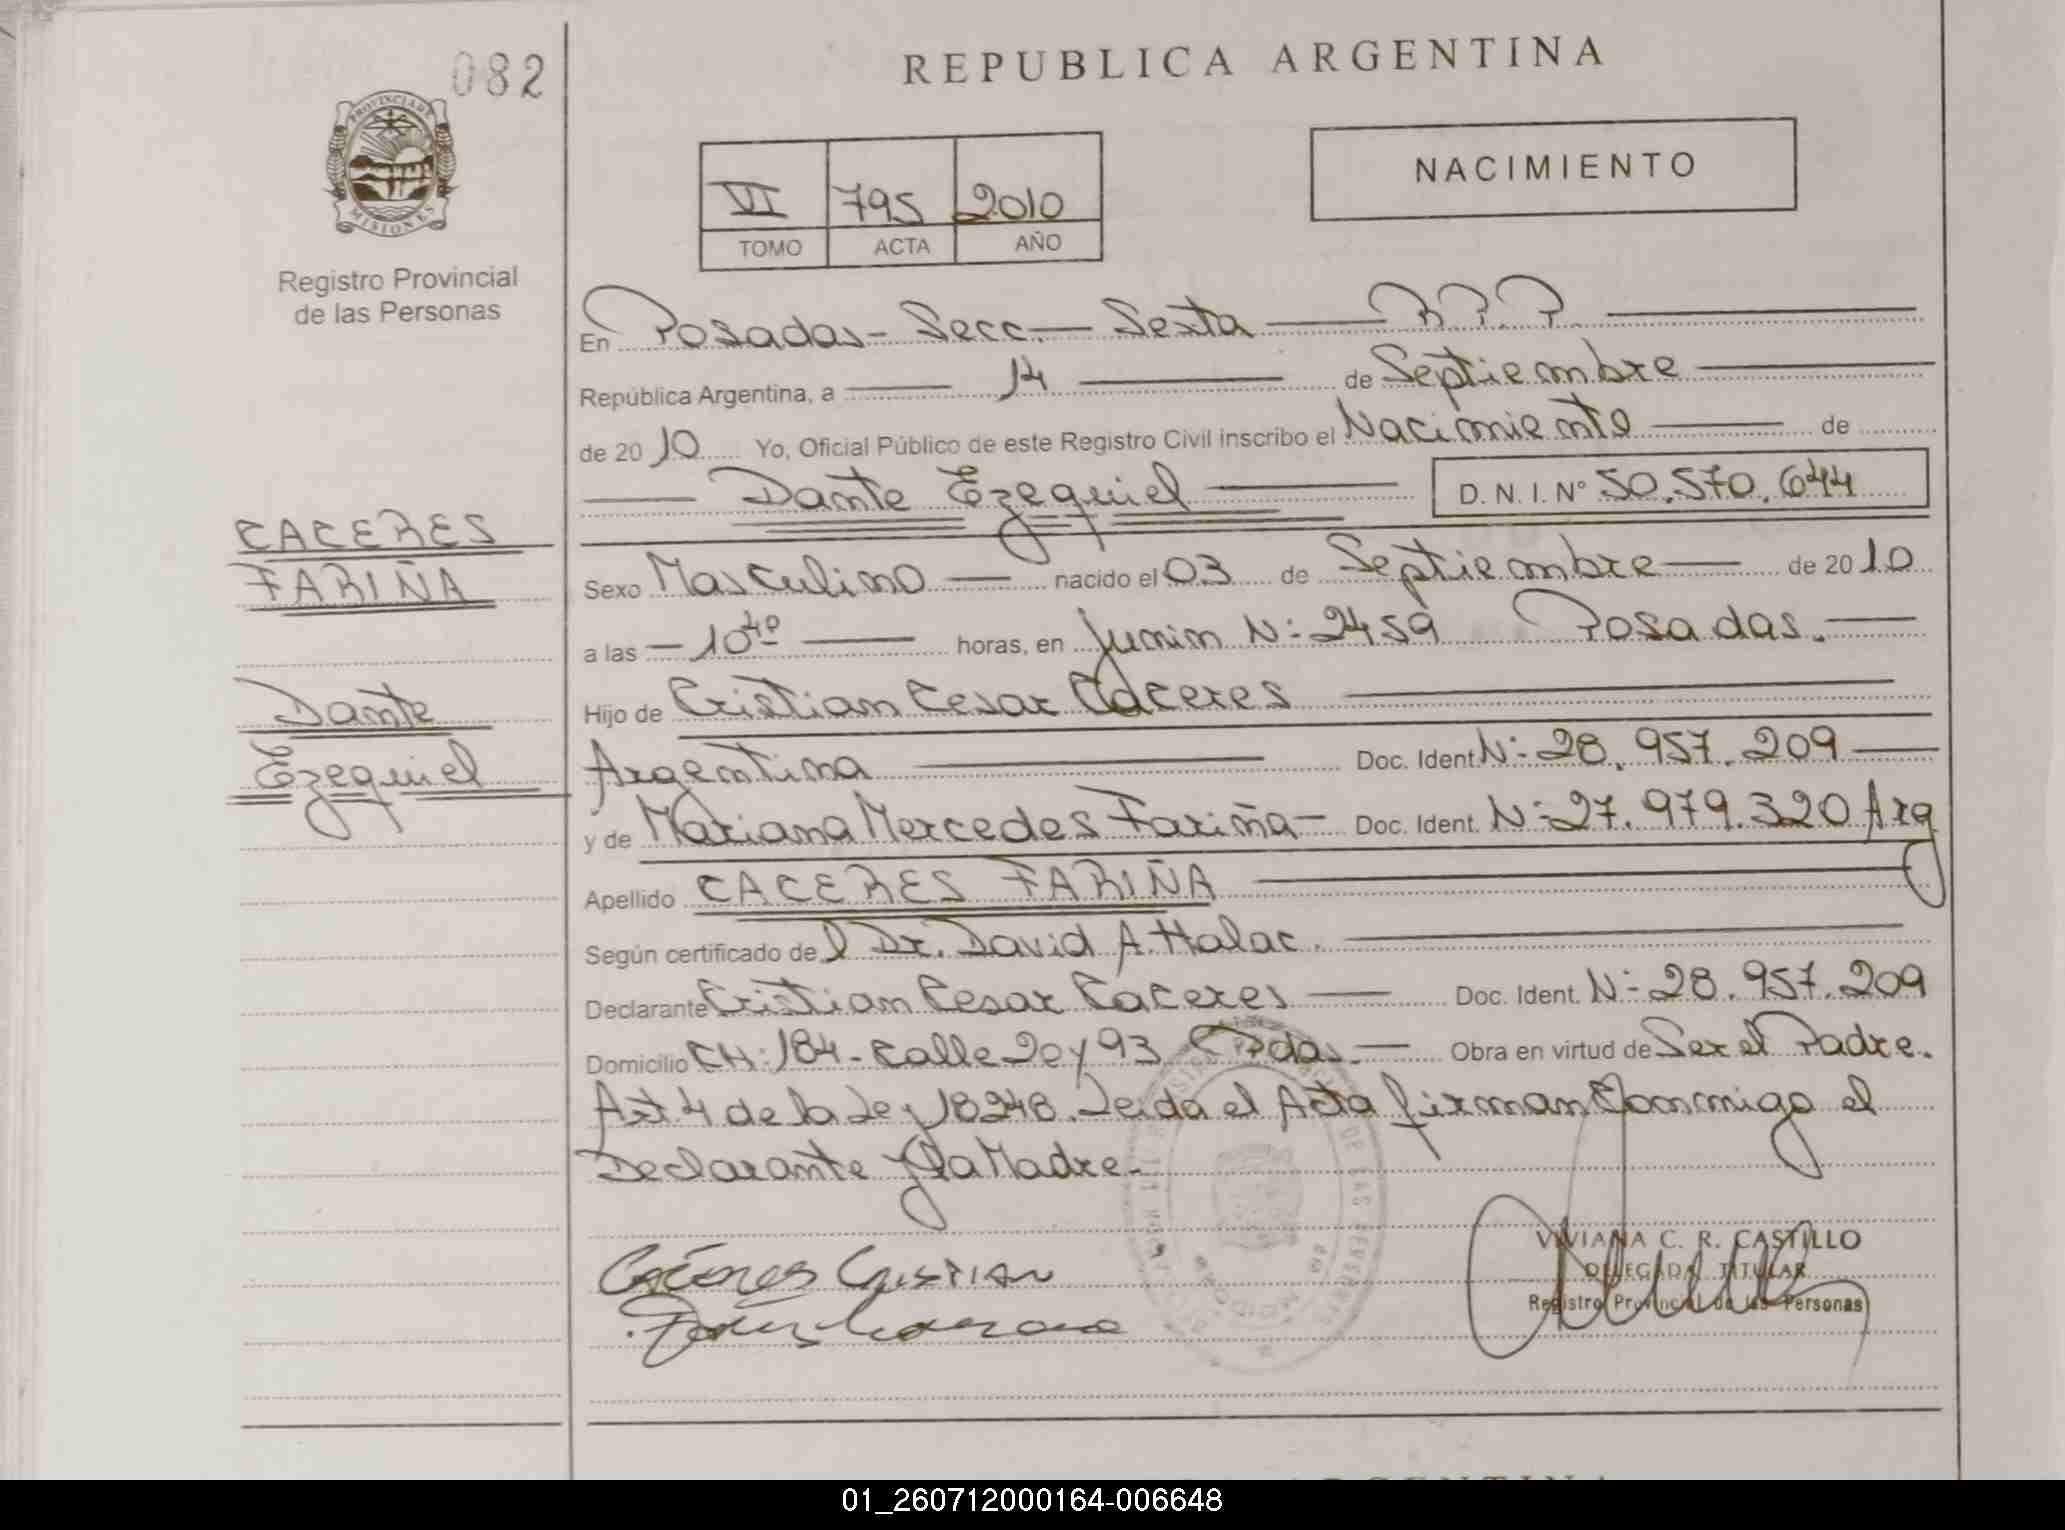 082
REPUBLICA ARGENTINA
PROVINCIA DE
MISIONES
Registro Provincial
de las Personas
VI 795 2010
TOMO ACTA AÑO
NACIMIENTO
En Posadas - Secc. — Sexta — R.P.P. —
República Argentina, a — 14 — de Septiembre —
de 2010 Yo, Oficial Público de este Registro Civil inscribo el Nacimiento — de
— Dante Ezequiel — D. N. I. Nº 50.570.644
CACERES
FARIÑA
Dante
Ezequiel
Sexo Masculino — nacido el 03 de Septiembre — de 2010
a las — 10 40 — horas, en Junin N: 2459 Posadas. —
Hijo de Cristian Cesar Caceres —
Argentina — Doc. Ident. N: 28.957.209 —
y de Mariana Mercedes Fariña — Doc. Ident. N: 27.979.320 Arg
Apellido CACERES FARIÑA —
Según certificado del Dr. David A. Halac. —
Declarante Cristian Cesar Caceres — Doc. Ident. N: 28.957.209
Domicilio CH: 184 - Calle 20 y 93 Pdas. — Obra en virtud de Ser el Padre.
Art 4 de la Ley 18248. Leida el Acta firman Conmigo el
Declarante y la Madre.
Caceres Cristian
VIVIANA C. R. CASTILLO
DELEGADA TITULAR
Registro Provincial de las Personas
01_260712000164-006648